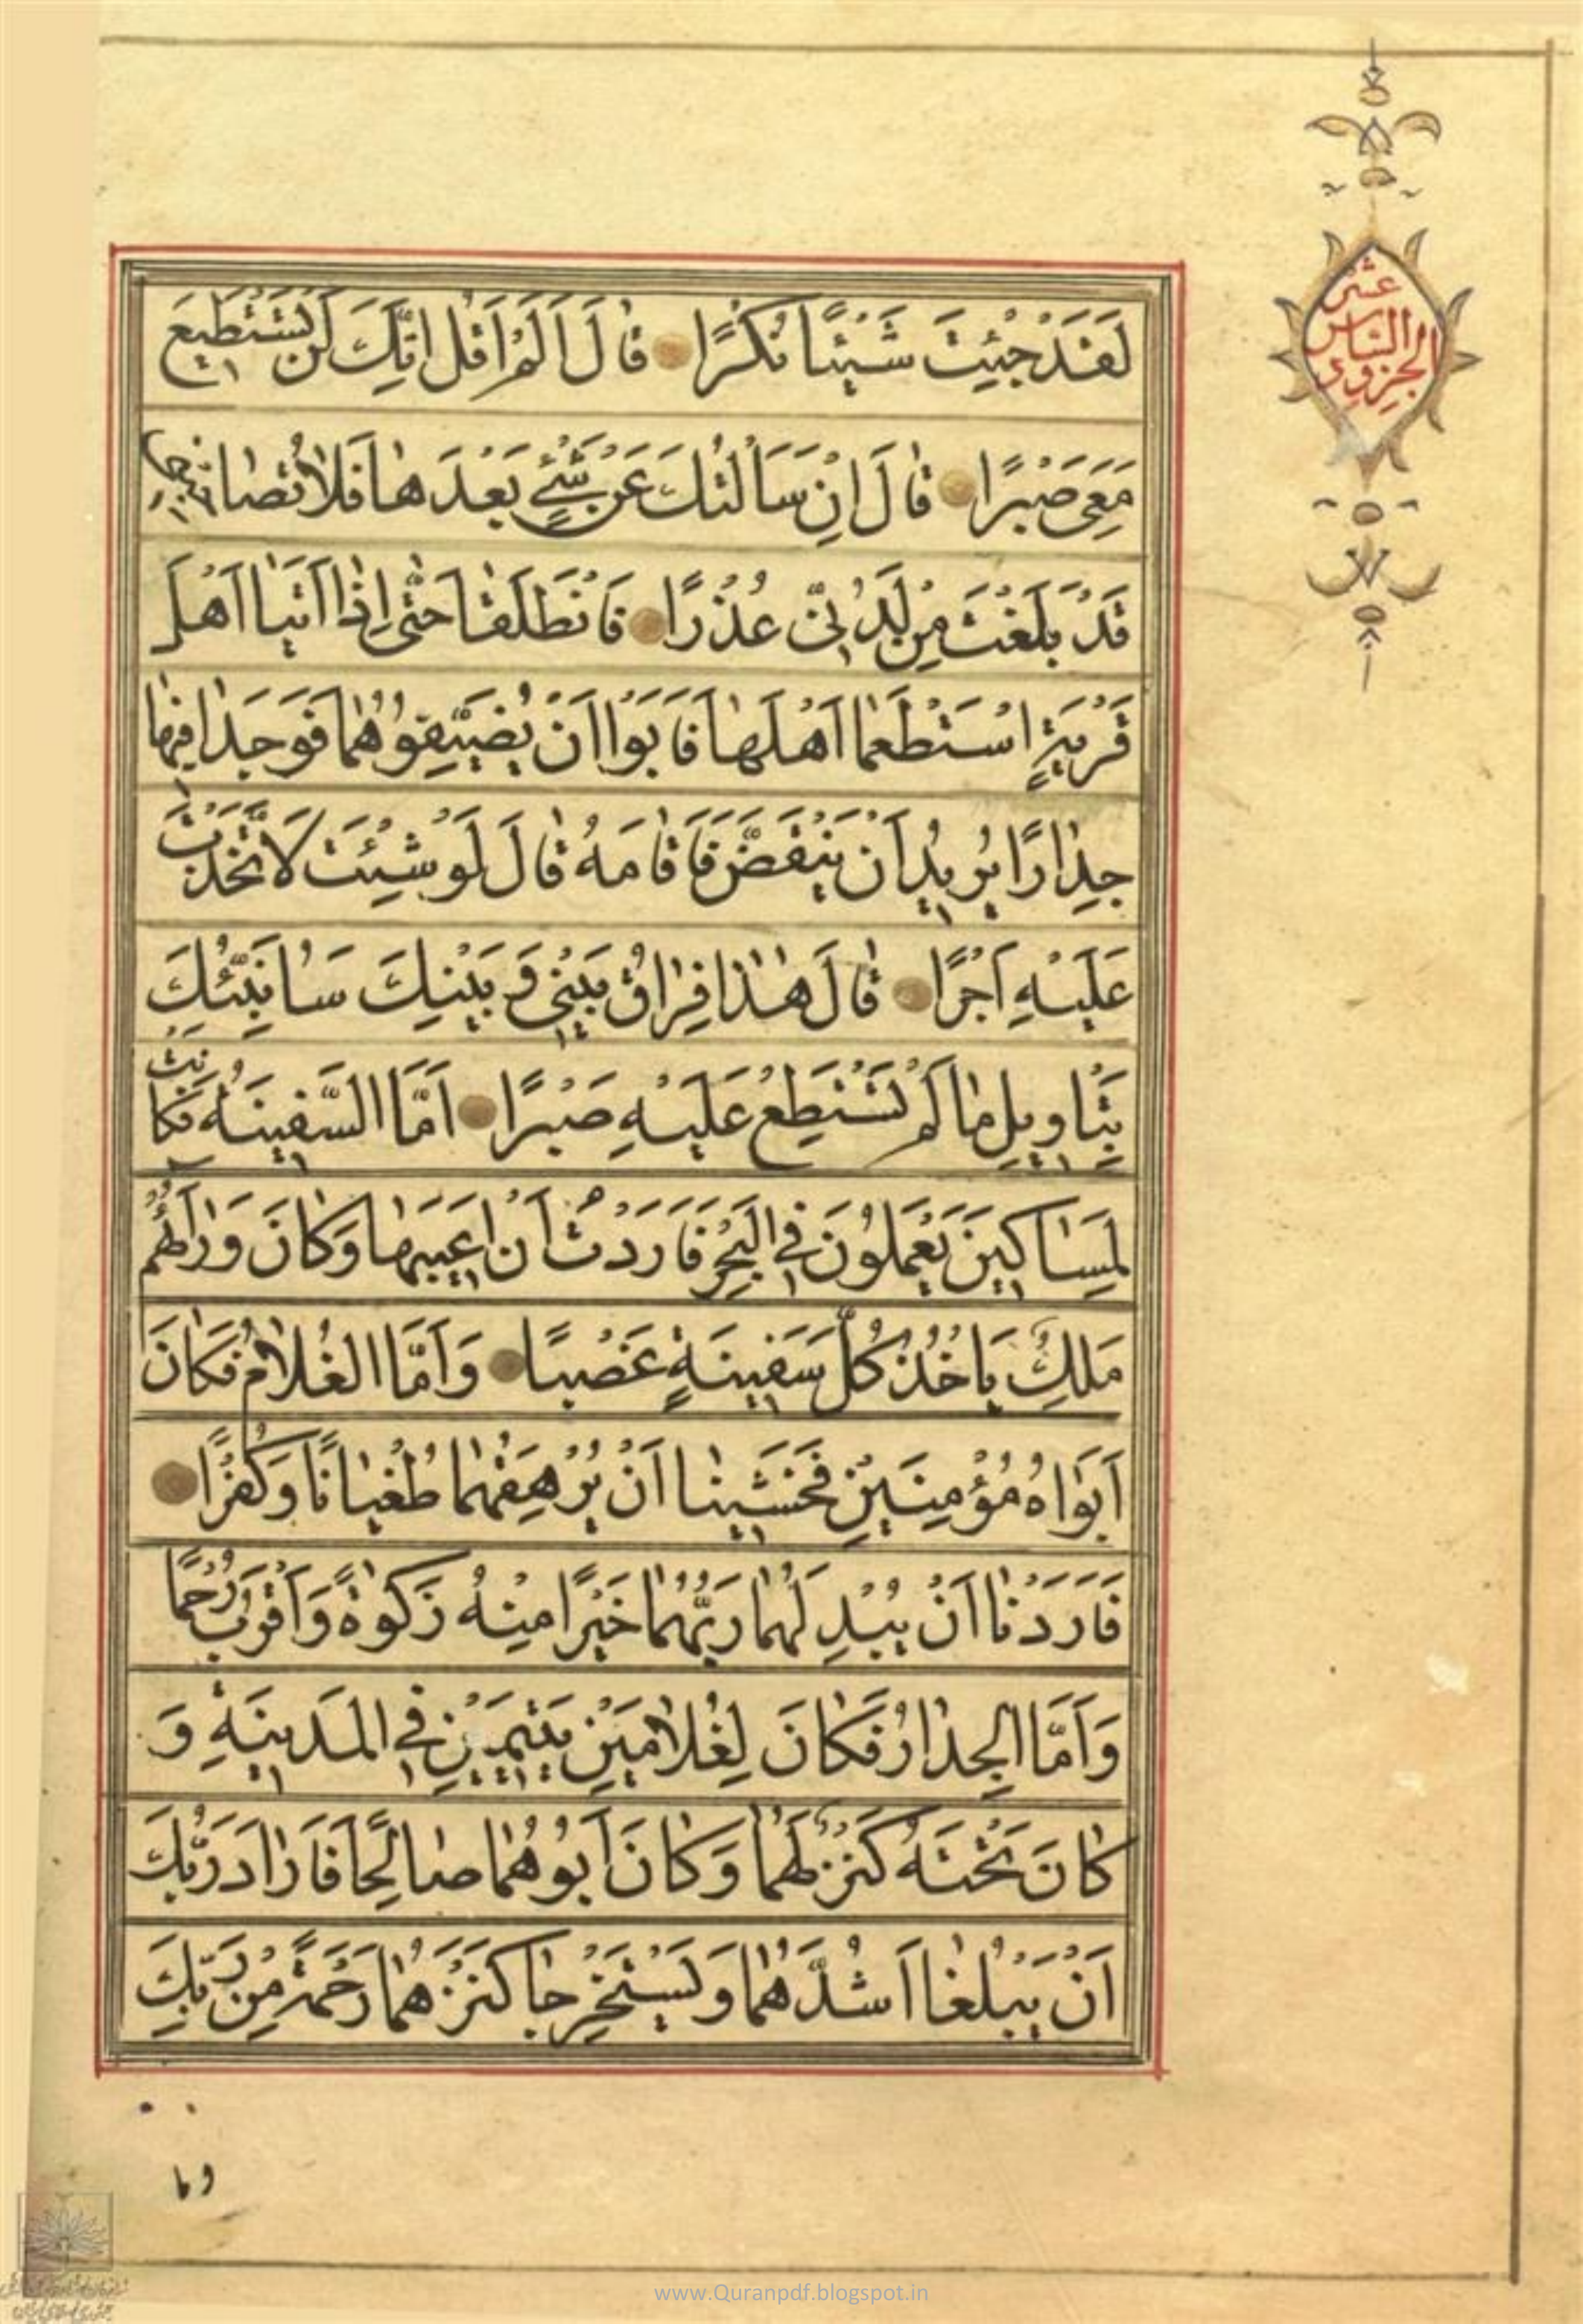 الجزو
السادس
عشر
لَقَدْ جِئْتَ شَيْئًا نُكْرًا قٰالَ اَلَمْ اَقُلْ اِنَّكَ لَنْ تَسْتَطيعَ
مَعِىَ صَبْرًا قٰالَ اِنْ سَاَلْتُكَ عَنْ شَيْءٍ بَعْدَهٰا فَلاٰ تُصٰاحِبْنى
قَدْ بَلَغْتَ مِنْ لَدُنّى عُذْرًا فَانْطَلَقٰا حَتّٰى اِذٰا اَتَيٰا اَهْلَ
قَرْيَةٍ اسْتَطْعَمٰا اَهْلَهٰا فَاَبَوْا اَنْ يُضَيِّفُوهُمٰا فَوَجَدٰا فيهٰا
جِدٰارًا يُريدُ اَنْ يَنْقَضَّ فَاَقٰامَهُ قٰالَ لَوْ شِئْتَ لَاتَّخَذْتَ
عَلَيْهِ اَجْرًا قٰالَ هٰذٰا فِرٰاقُ بَيْنى وَ بَيْنِكَ سَاُنَبِّئُكَ
بِتَاْويلِ مٰا لَمْ تَسْتَطِعْ عَلَيْهِ صَبْرًا اَمَّا السَّفينَةُ فَكٰانَتْ
لِمَسٰاكينَ يَعْمَلُونَ فِى الْبَحْرِ فَاَرَدْتُ اَنْ اَعيبَهٰا وَكٰانَ وَرٰاءَهُمْ
مَلِكٌ يَاْخُذُ كُلَّ سَفينَةٍ غَصْبًا وَاَمَّا الْغُلاٰمُ فَكٰانَ
اَبَوٰاهُ مُؤْمِنَيْنِ فَخَشينٰا اَنْ يُرْهِقَهُمٰا طُغْيٰانًا وَكُفْرًا
فَاَرَدْنٰا اَنْ يُبْدِلَهُمٰا رَبُّهُمٰا خَيْرًا مِنْهُ زَكٰوةً وَاَقْرَبَ رُحْمًا
وَاَمَّا الْجِدٰارُ فَكٰانَ لِغُلاٰمَيْنِ يَتيمَيْنِ فِى الْمَدينَةِ وَ
كٰانَ تَحْتَهُ كَنْزٌ لَهُمٰا وَكٰانَ اَبُوهُمٰا صٰالِحًا فَاَرٰادَ رَبُّكَ
اَنْ يَبْلُغٰا اَشُدَّهُمٰا وَيَسْتَخْرِجٰا كَنْزَهُمٰا رَحْمَةً مِنْ رَبِّكَ
وما
www.Quranpdf.blogspot.in